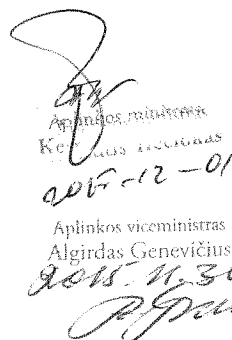 Aplinkos ministras
2015-12-01
Aplinkos viceministras
Algirdas Genevičius
2015.11.30